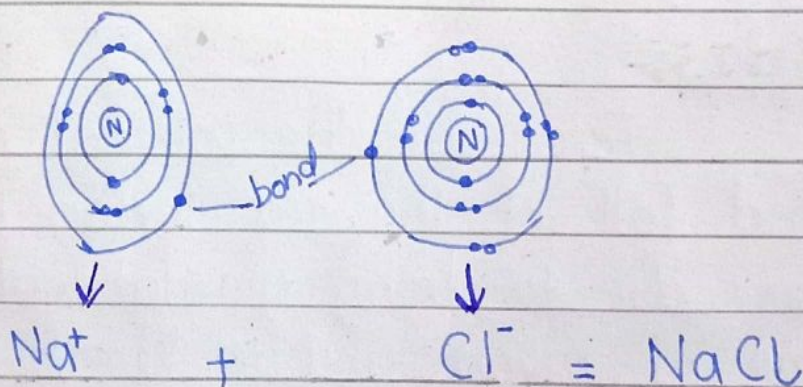 N N
bond
Na⁺ + Cl⁻ = NaCl